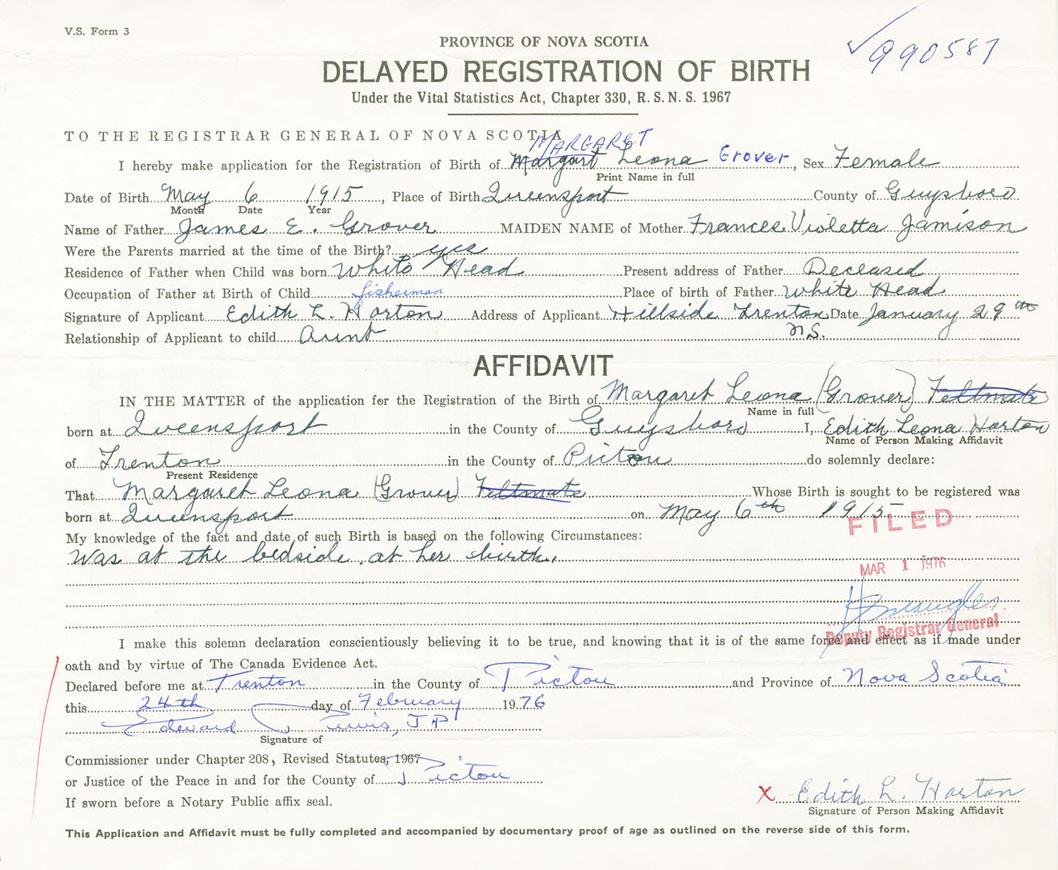 V.S. Form 3
990587
PROVINCE OF NOVA SCOTIA
DELAYED REGISTRATION OF BIRTH
Under the Vital Statistics Act, Chapter 330, R.S.N.S. 1967
TO THE REGISTRAR GENERAL OF NOVA SCOTIA
MARGARET
I hereby make application for the Registration of Birth of Margart Leona Grover, Sex Female
Print Name in full
Date of Birth May 6 1915, Place of Birth Queensport County of Guysboro
Month Date Year
Name of Father James E. Grover MAIDEN NAME of Mother Frances Violetta Jamison
Were the Parents married at the time of the Birth? yes
Residence of Father when Child was born White Head Present address of Father Deceased
Occupation of Father at Birth of Child fisherman Place of birth of Father White Head
Signature of Applicant Edith L. Horton Address of Applicant Hillside Trenton Date January 29th
Relationship of Applicant to child Aunt N.S.
AFFIDAVIT
IN THE MATTER of the application for the Registration of the Birth of Margaret Leona (Grover) Feltmate
Name in full
born at Queensport in the County of Guysboro I, Edith Leona Horton
Name of Person Making Affidavit
of Trenton in the County of Pictou do solemnly declare:
Present Residence
That Margaret Leona (Grover) Feltmate Whose Birth is sought to be registered was
born at Queensport on May 6th 1915
FILED
My knowledge of the fact and date of such Birth is based on the following Circumstances:
Was at the bedside at her birth.
MAR 1 1976
Deputy Registrar General
I make this solemn declaration conscientiously believing it to be true, and knowing that it is of the same force and effect as if made under
oath and by virtue of The Canada Evidence Act.
Declared before me at Trenton in the County of Pictou and Province of Nova Scotia
this 24th day of February 1976
Edward Purvis, J P
Signature of
Commissioner under Chapter 208, Revised Statutes, 1967
or Justice of the Peace in and for the County of Pictou
If sworn before a Notary Public affix seal.
X Edith L. Horton
Signature of Person Making Affidavit
This Application and Affidavit must be fully completed and accompanied by documentary proof of age as outlined on the reverse side of this form.